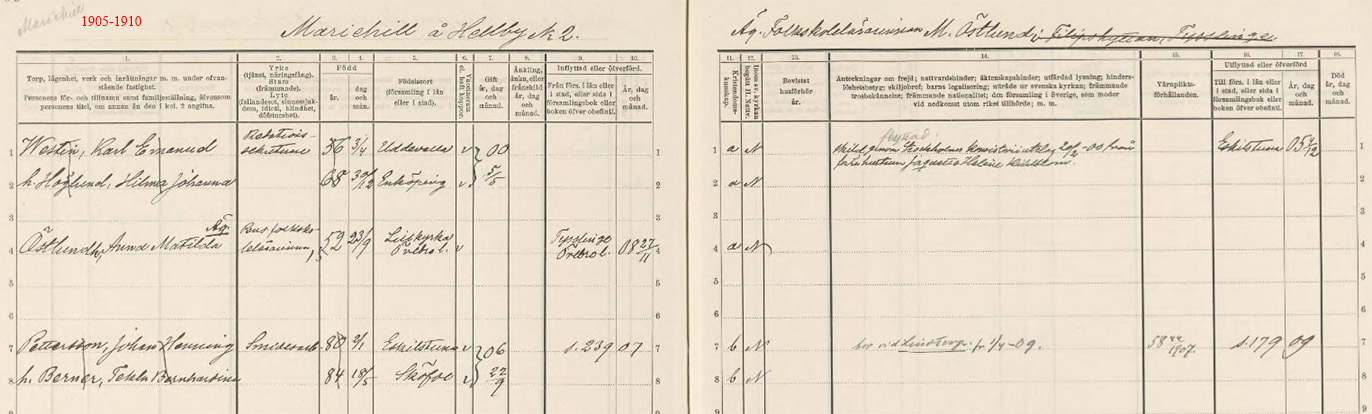 Mariehill
1905-1910
Mariehill å Hellby N 2.
Äg. Folkskolelärarinnan M. Östlund i Filipshyttan, Tysslinge
1. 2. 3. 4. 5. 6. 7. 8. 9. 10.
Torp, lägenhet, verk och inrättningar m. m. under ofvan-
stående fastighet.
Personens för- och tillnamn samt familjeställning, äfvensom
personens titel, om annan än den i kol. 2 angifna.
Yrke
(tjänst, näringsfång).
Stam
(främmande).
Lyte
(fallandesot, sinnessjuk-
dom, idioti, blindhet,
döfstumhet).
Född
år.
dag
och
mån.
Födelseort
(församling i län
eller i stad).
Vaccineran
el. haft koppor.
Gift
år, dag
och
månad.
Änkling,
änka, eller
frånskild
år, dag
och
månad.
Inflyttad eller öfverförd.
Från förs. i län eller
i stad, eller sida i
församlingsbok eller
boken öfver obefintl.
År, dag
och
månad.
11. 12. 13. 14. 15. 16. 17. 18.
Kristendoms-
kunskap.
Inom sv. kyrkan
begått H. Nattv.
Bevistat
husförhör
år.
Anteckningar om frejd; nattvardshinder; äktenskapshinder; utfärdad lysning; hinders-
löshetsbetyg; skiljobref; barns legalisering; utträde ur svenska kyrkan; främmande
trosbekännelse; främmande nationalitet; den församling i Sverige, som moder
vid nedkomst utom riket tillhörde; m. m.
Värnplikts-
förhållanden.
Utflyttad eller öfverförd
Till förs. i län eller
i stad, eller sida i
församlingsbok eller
boken öfver obefintl.
År, dag
och
månad.
Död
År, dag
och
månad.
1 Westin, Karl Emanuel Redaktions-
sekreterare 56 3/4 Uddevalla v 00 1 a N Skild genom Stockholms konsistorii utslag 20/2 -00 från Eskilstuna 05 1
2 h. Höglund, Hilma Johanna 68 30/12 Enköping v 5/5 2 a N 2
3 3
4 Äg. Östlund, Anna Matilda folksko-
lelärarinna 52 23/9 Lillkyrka
Örebro l. v Tysslinge
Örebro l. 08 27/11 4 a N 4
5 5
6 6
7 Pettersson, Johan Henning Smidesarb. 80 2/1 Eskilstuna v 06 s. 239 07 7 b N bor vid fr 1/4 -09. 58 44/1907. s. 179 09 7
8 h. Berner, Tekla Bernhardina 84 18/5 v 22/9 8 b N 8
9